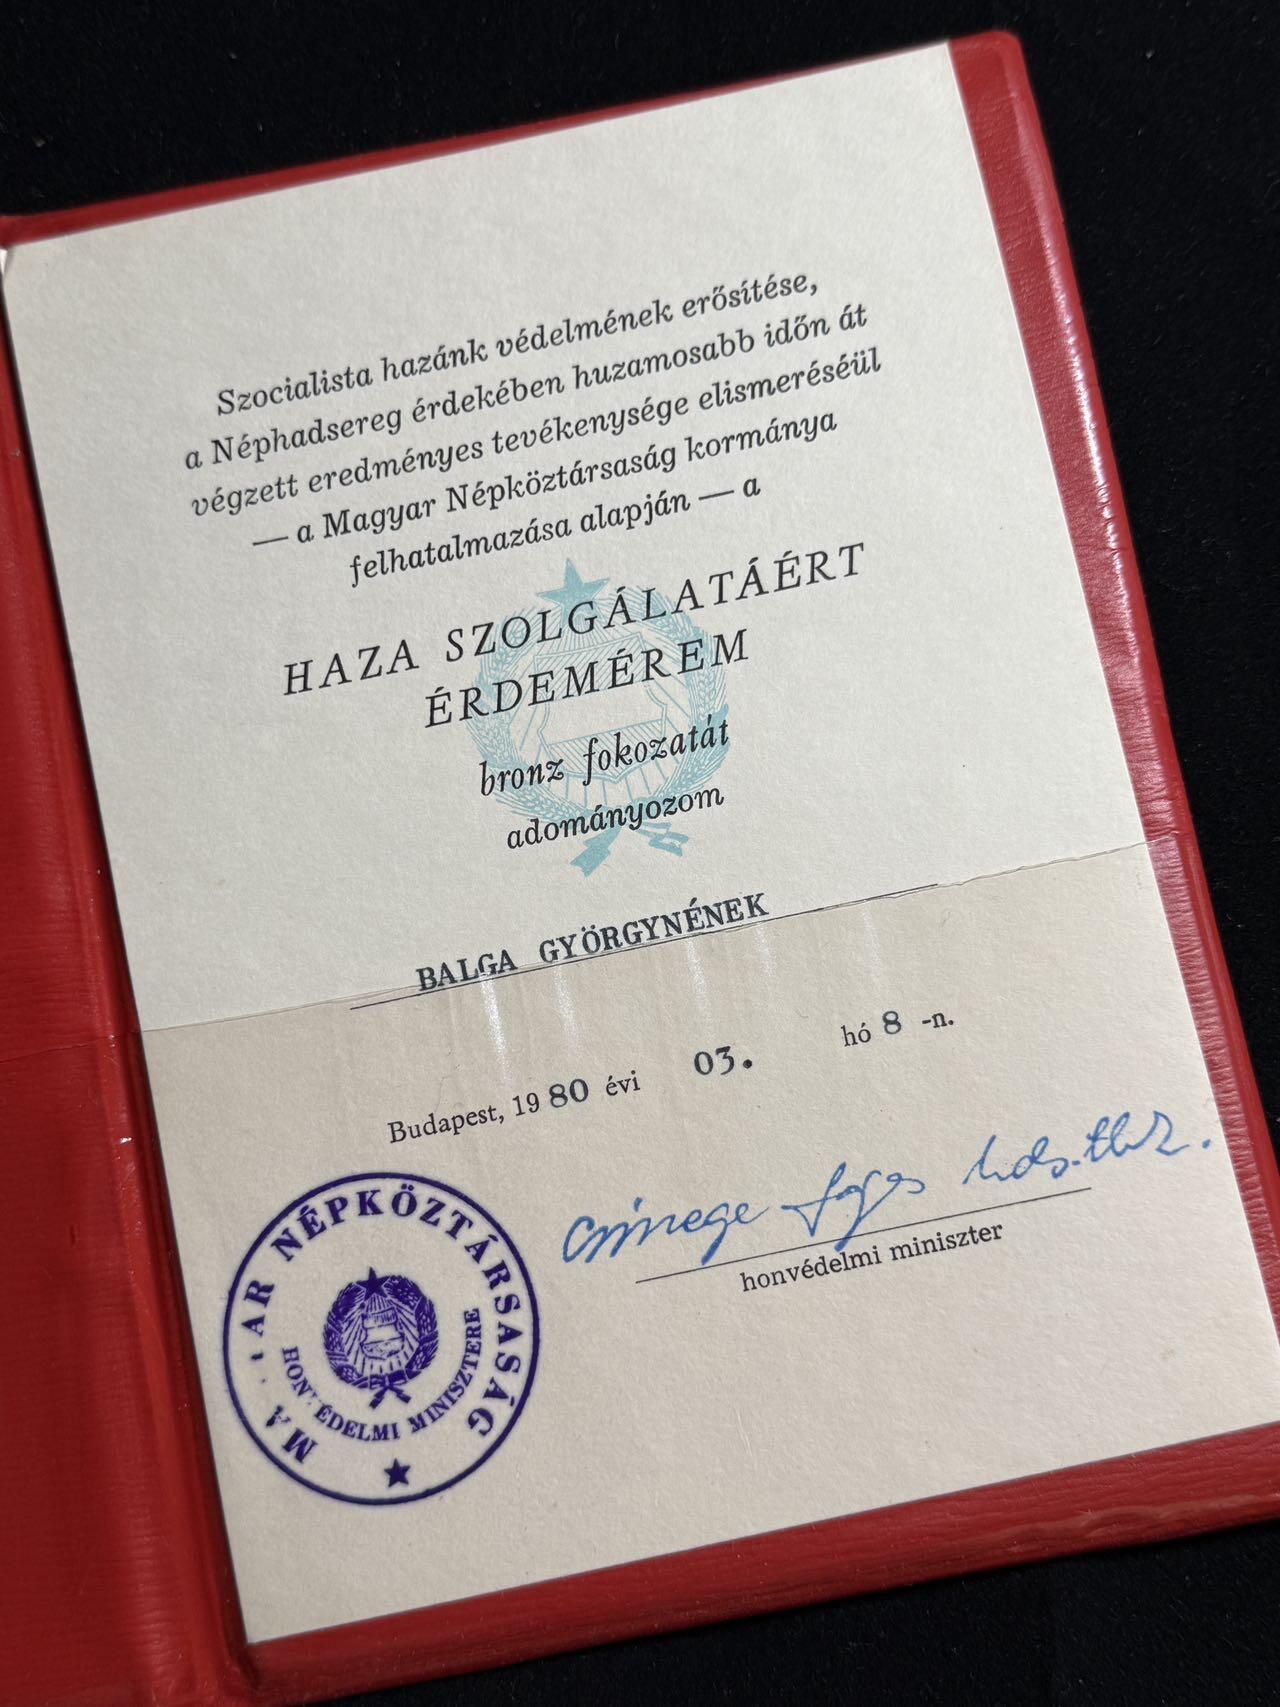 Szocialista hazánk védelmének erősítése,
a Néphadsereg érdekében huzamosabb időn át
végzett eredményes tevékenysége elismeréséül
— a Magyar Népköztársaság kormánya
felhatalmazása alapján — a
HAZA SZOLGÁLATÁÉRT
ÉRDEMÉREM
bronz fokozatát
adományozom
BALGA GYÖRGYNÉNEK
Budapest, 1980 évi 03. hó 8 -n.
Czinege Lajos
honvédelmi miniszter
MA AR NÉPKÖZTÁRSASÁG
HON ÉDELMI MINISZTERE